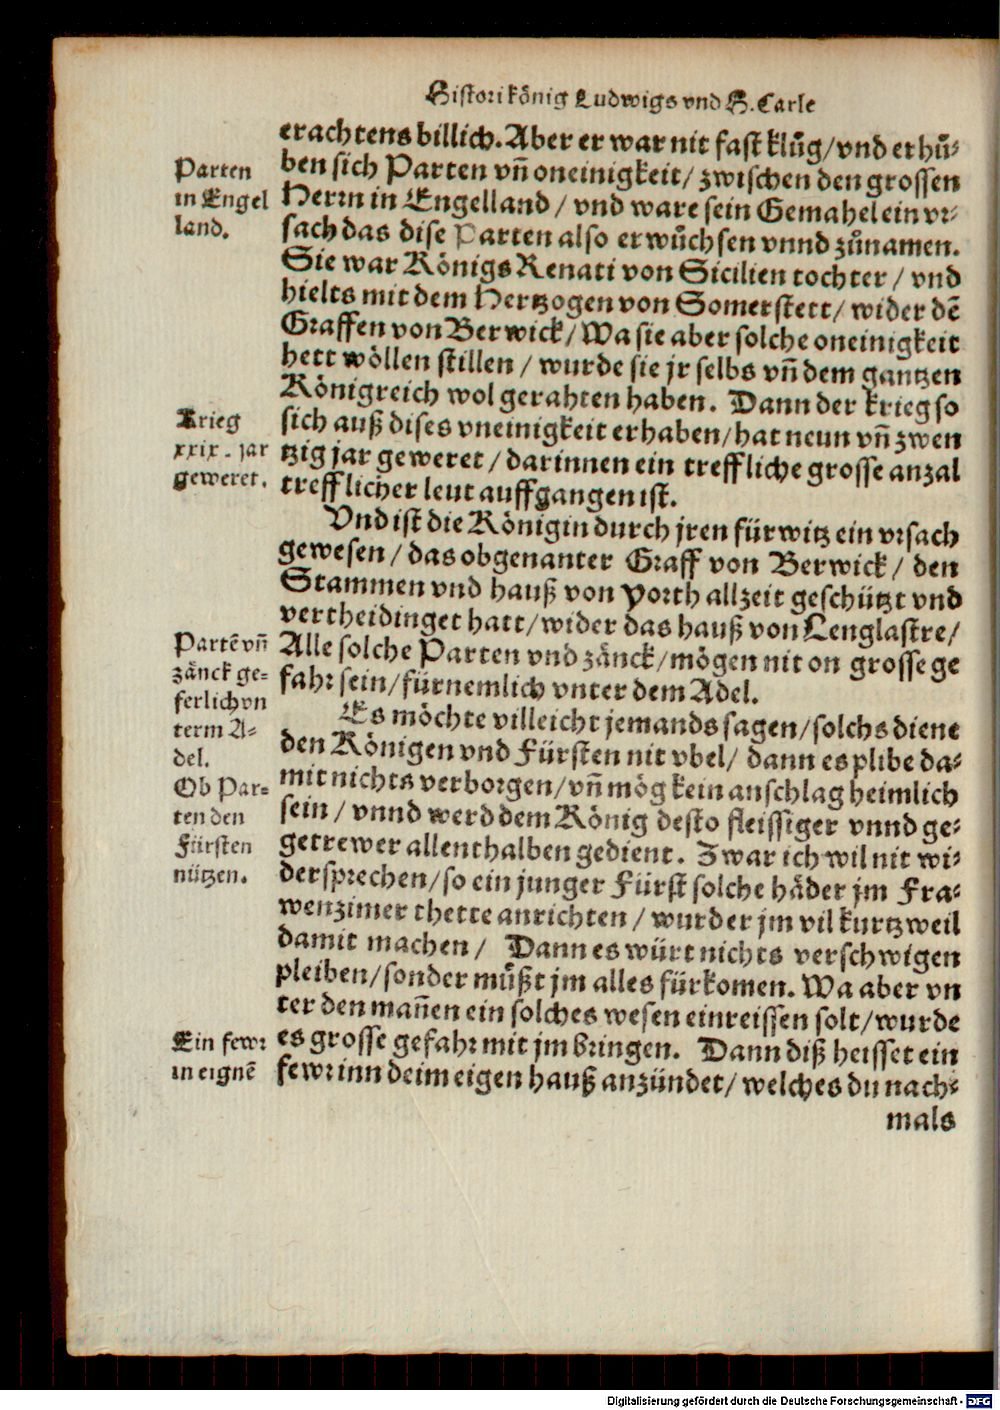 Histori könig Ludwigs vnd H. Carle
erachtens billich. Aber er war nit fast klůg/vnd er hů⸗
ben sich Parten vñ oneinigkeit/ zwischen den grossen
Herrn in Engelland / vnd ware sein Gemahel ein vr⸗
sach das dise Parten also erwůchsen vnnd zůnamen.
Sie war Königs Renati von Sicilien tochter / vnd
hielts mit dem Hertzogen von Somerstett/ wider dē
Graffen von Berwick/ Wa sie aber solche oneinigkeit
hett wöllen stillen / wurde sie jr selbs vñ dem gantzen
Königreich wol gerahten haben. Dann der krieg so
sich auß dises vneinigkeit erhaben/hat neun vñ zwen
tzig jar geweret / darinnen ein treffliche grosse anzal
trefflicher leut auffgangen ist.
Vnd ist die Königin durch jren fürwitz ein vrsach
gewesen / das obgenanter Graff von Berwick/ den
Stammen vnd hauß von Yorth allzeit geschützt vnd
vertheidinget hatt/wider das hauß von Lenglastre/
Alle solche Parten vnd zänck/mögen nit on grosse ge
fahr sein/fürnemlich vnter dem Adel.
Es möchte villeicht jemands sagen/solchs diene
den Königen vnd Fürsten nit vbel/ dann es plibe da⸗
mit nichts verborgen/vñ mög kein anschlag heimlich
sein / vnnd werd dem König desto fleissiger vnnd ge⸗
getrewer allenthalben gedient. Zwar ich wil nit wi⸗
dersprechen/so ein junger Fürst solche häder jm Fra⸗
wenzimer thette anrichten / wurd er jm vil kurtzweil
damit machen / Dann es würt nichts verschwigen
pleiben/sonder můßt jm alles fürkomen. Wa aber vn
ter den mañen ein solches wesen einreissen solt/wurde
es grosse gefahr mit jm bringen. Dann diß heisset ein
fewr inn deim eigen hauß anzündet/ welches du nach⸗
mals
Parten
in Engel
land.
Krieg
xxix. jar
geweret.
Partē vñ
zänck ge⸗
ferlich vn
term A⸗
del.
Ob Par⸗
ten den
Fürsten
nützen.
Ein fewr
in eignē
Digitalisierung gefördert durch die Deutsche Forschungsgemeinschaft - DFG